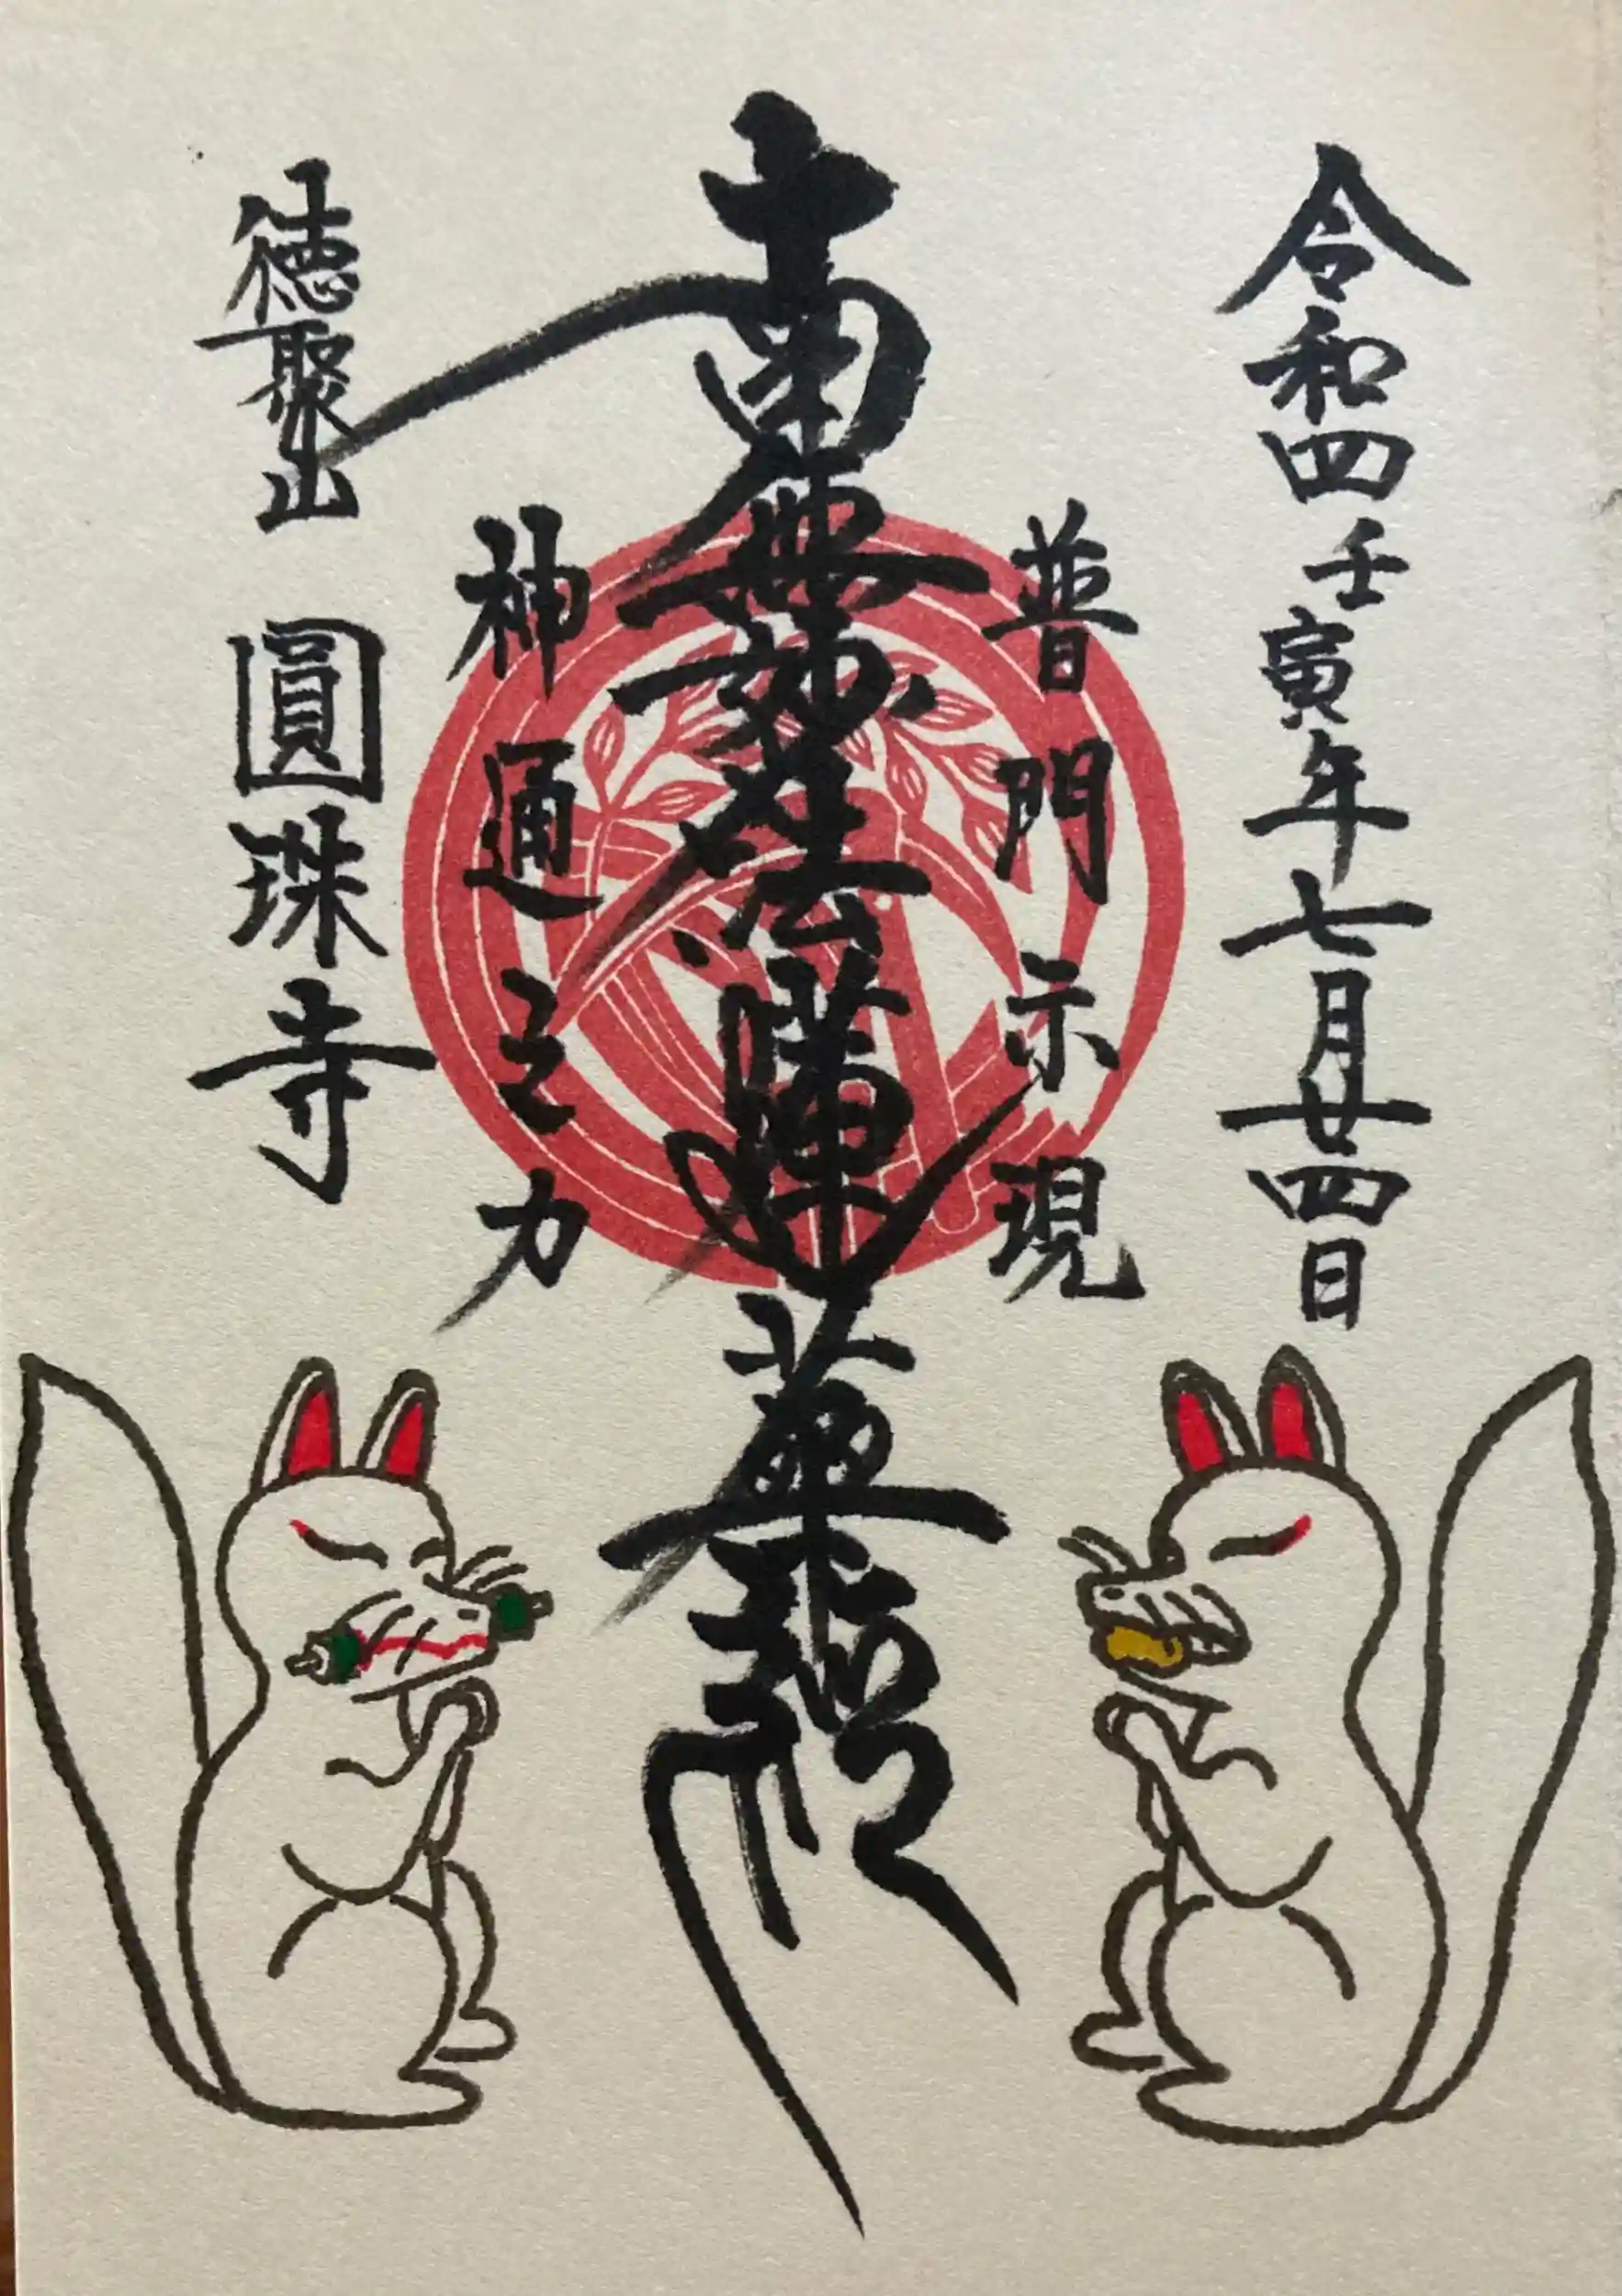 令和四壬寅年七月廿四日
普門示現
南無妙法蓮華経
神通之力
徳聚山 圓珠寺